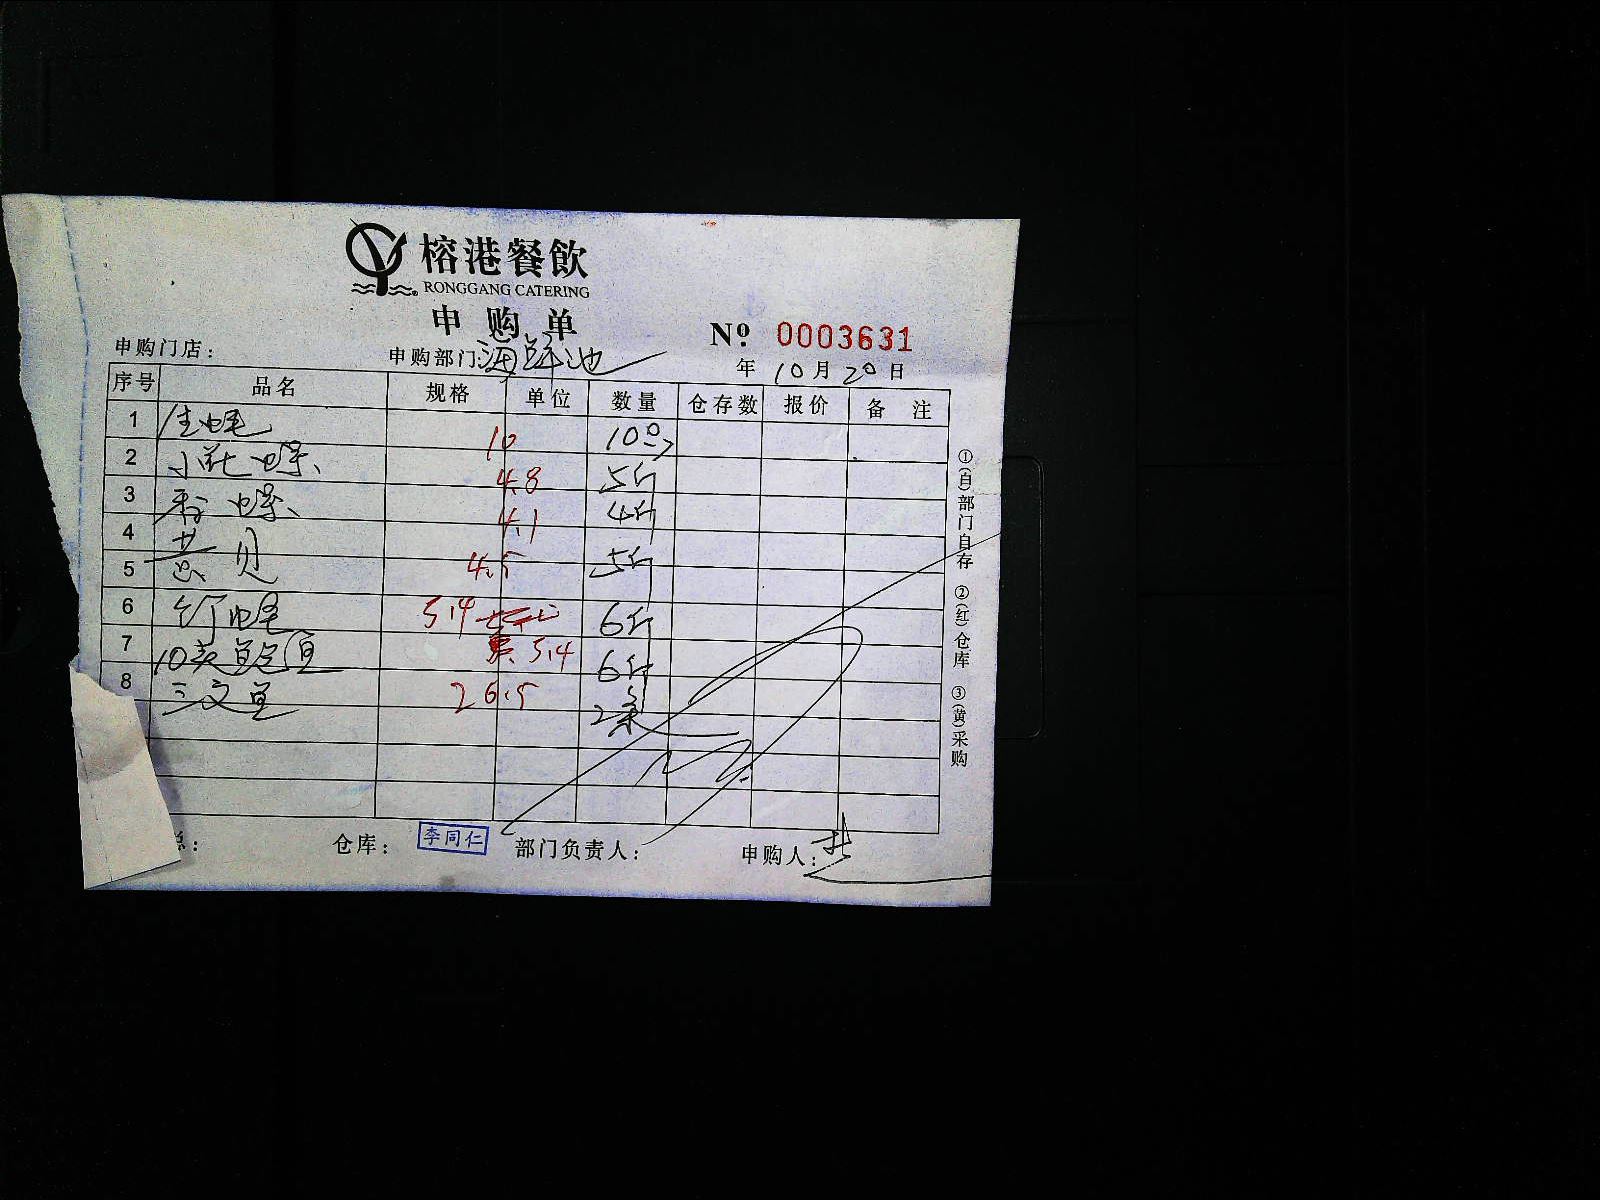 榕港餐飲
RONGGANG CATERING
申购单
№ 0003631
申购门店： 申购部门：海鲜池 年10月20日
序号 品名 规格 单位 数量 仓存数 报价 备注
1 生蚝 10 10只
2 小花螺 4.8 5斤
3 香螺 4.1 4斤
4 黄贝 4.5 5斤
5
6 竹蛏 5.4 6斤
7 10头鱼包鱼 5.4 6斤
8 三文鱼 26.5 2条
①(白)部门自存 ②(红)仓库 ③(黄)采购
仓库： 李同仁 部门负责人： 申购人：